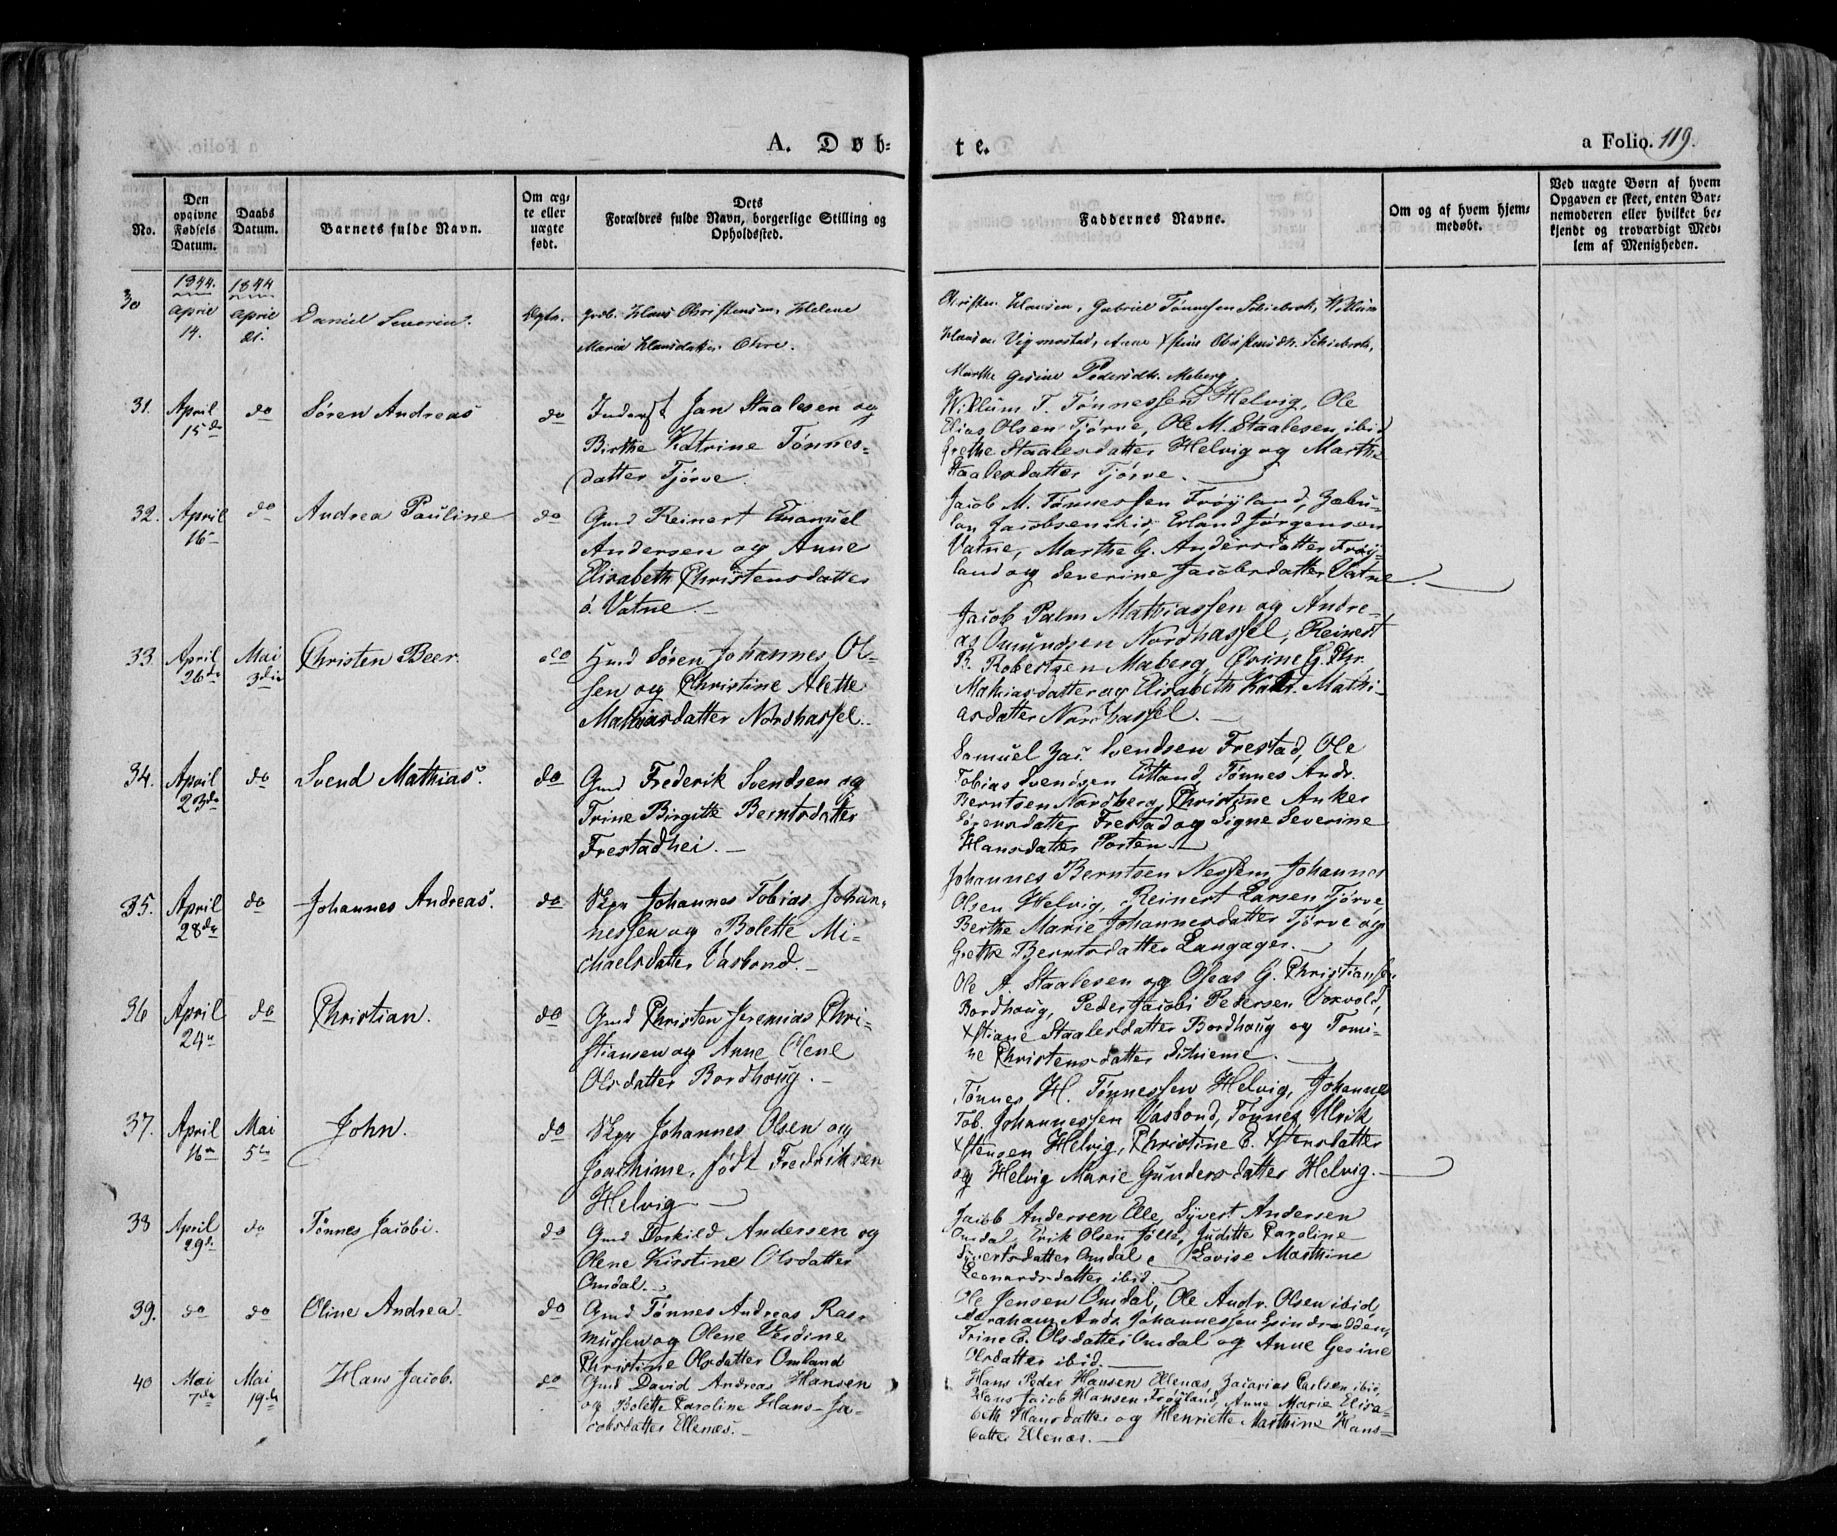 A. Døb-
te.
a Folio. 119.
No.
Den opgivne Fødsels Datum.
Daabs Datum.
Barnets fulde Navn.
Om æg- te eller uægte født.
Dets Forældres fulde Navn, borgerlige Stilling og Opholdssted.
Faddernes Navne.
Om og af hvem hjem- medøbt.
Ved uægte Børn af hvem Opgaven er skeet, enten Bar- nemoderen eller hvilket be- kjendt og troværdigt Med- lem af Menigheden.
1844. 1844
30 April 14. April 21. Daniel Severin. Ægte.
Hans Christensen, Helene
Maria Hansdatter Ohre.
Christen Hansen, Gabriel Tønnesen Schiebrok, William
Hansen Vigmostad, Anne Xstine Christensdtr. Schiebrok,
Marthe Gesine Pedersdtr. Meberg.
31. April 15de do Søren Andreas do
Inderst Jan Staalesen og
Birthe Katrine Tønnes-
datter Tjörve.
Willum T. Tønnessen Helvig, Ole
Elias Olsen Tjörve, Ole M. Staalesen ibid
Grethe Staalesdatter Helvig og Marthe
Staalesdatter Tjörve.
32. April 16 do Andrea Pauline do
Gmd Reinert Emanuel
Andersen og Anne
Elisabeth Christensdatter
ö. Vatne.
Jacob M. Tønnessen Fröyland, Zabu-
lon Jacobsen ibid, Erland Jørgensen
Vatne, Marthe G. Andersdatter Fröy-
land og Severine Jacobsdatter Vatne.
33. April 26de Mai 3die Christen Beer. do
Hmd Søren Johannes Ol-
sen og Christine Alette
Mathiasdatter Nordhassel.
Jacob Palm Mathiassen og Andre-
as Omundsen Nordhassel, Reinert
B. Robertsen Maberg, Øvine G. Chr.
Mathiasdatter og Elisabeth Katr. Mathi-
asdatter Nordhassel.
34. April 23de do Svend Mathias. do
Gmd Frederik Svendsen og
Trine Birgitte Berntsdatter
Frestadhei.
Samuel Zac. Svendsen Frestad, Ole
Tobias Svendsen Eitland, Tønnes Andr.
Berntsen Nordberg, Christine Anker
Sørensdatter Frestad og Signe Severine
Hansdatter Porten.
35. April 28de do Johannes Andreas. do
Skpr Johannes Tobias Johan-
nessen og Bolette Mi-
chaelsdatter Vasbond.
Johannes Berntsen Nesheim, Johannes
Olsen Helvig, Reinert Larsen Tjörve,
Berthe Marie Johannesdatter Tjörve og
Grethe Berntsdatter Langager.
36 April 24 do Christian. do
Gmd Christen Jeremias Chri-
stiansen og Anne Olene
Olsdatter Bordhoug.
Ole A. Staalesen og Oseas G. Christiansen
Bordhoug, Peder Jacobi Pedersen Voxvold,
Xstiane Staalesdatter Bordhoug og Tomi-
ne Christensdatter Schieme.
37. April 16 Mai 5te John. do
Skpr Johannes Olsen og
Joachime, født Fredriksen
Helvig
Tønnes H. Tønnessen Helvig, Johannes
Tob. Johannessen Vasbond, Tønnes Ulrik
Xstensen Helvig, Christine C. Xstensdatter
og Helvig Marie Gundersdatter Helvig.
38 April 29de do Tønnes Jacobi. do
Gmd Torkild Andersen og
Olene Kirstine Olsdatter
Omdal.
Jacob Andersen Elle, Syvert Andersen
Omdal, Erik Olsen Jölle, Juditte Caroline
Syvertsdatter Omdal, Lovise Marthine
Leonardsdatter ibid.
39. do do Oline Andrea. do
Gmd Tønnes Andreas Ras-
mussen og Olene Verdine
Christine Olsdatter Omland
Ole Jensen Omdal, Ole Andr. Olsen ibid,
Abraham Andr. Johannessen Grindredden,
Trine C. Olsdatter Omdal og Anne Gesine
Olsdatter ibid.
40 Mai 7de Mai 19de Hans Jacob. do
Gmd David Andreas Hansen
og Bolette Caroline Hans-Ja-
cobsdatter Ellenæs.
Hans Peder Hansen Ellenæs, Zacarias Carlsen ibid,
Hans Jacob Hansen Fröyland, Anne Marie Elisa-
beth Hansdatter og Henriette Marthine Hans-
datter Ellenæs.